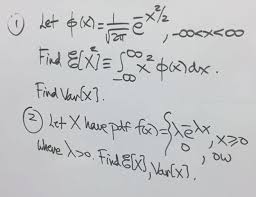 ① Let ϕ(x) = 1/√(2π) e^(-x²/2), -∞<x<∞
Find ℰ[X²] ≡ ∫_{-∞}^{∞} x² ϕ(x) dx.
Find Var[X].
② Let X have pdf f(x) = { λe^(-λx), x≥0
0, ow
where λ>0. Find ℰ[X], Var[X].